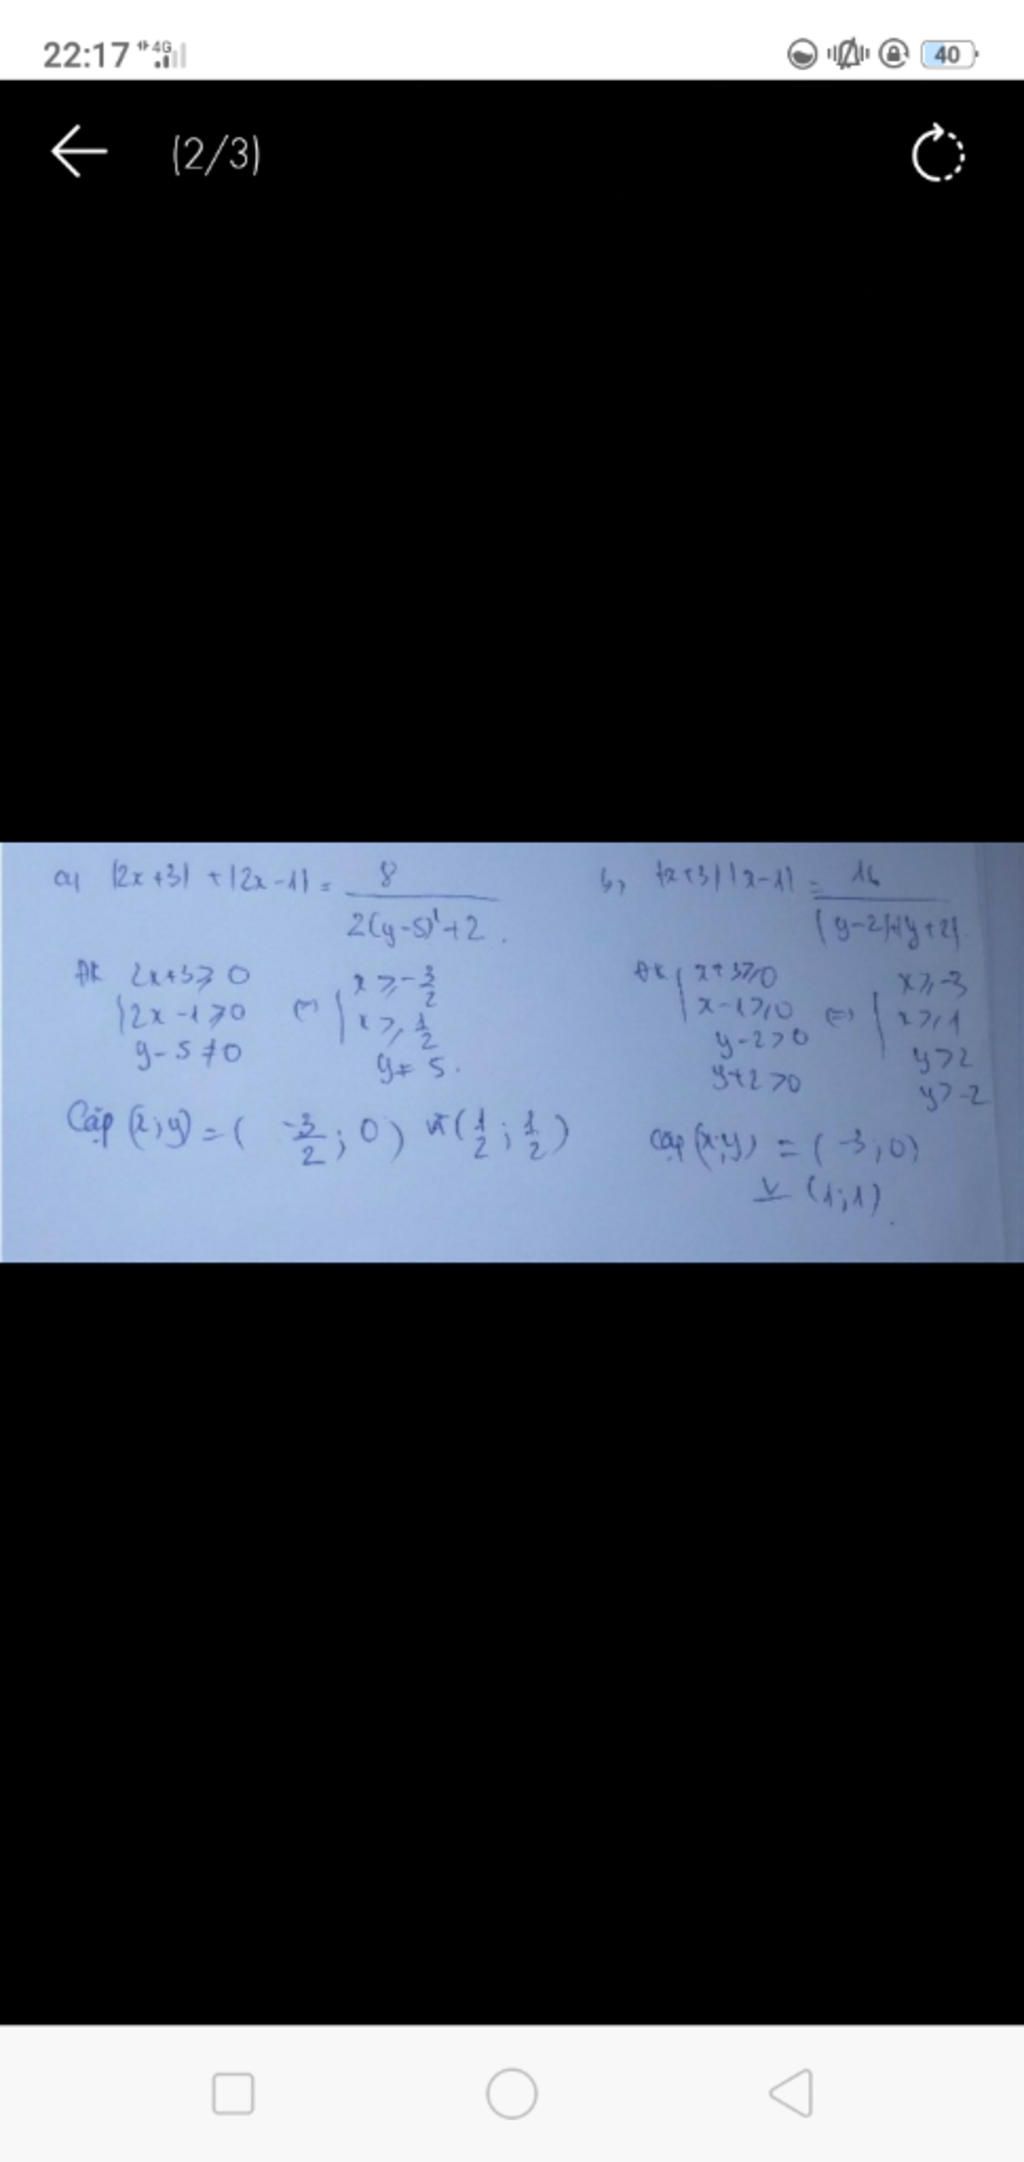 22:17 4G 40
(2/3)
a, |2x+3| + |2x-1| = 8 / 2(y-5)²+2.
ĐK 2x+3 ≥ 0
2x-1 ≥ 0
y-5 ≠ 0
⇔ x ≥ -3/2
x ≥ 1/2
y ≠ 5.
Cặp (x;y) = ( -3/2; 0) và (1/2; 1/2)
b, |x+3| |x-1| = 16 / |y-2|+|y+2|.
ĐK x+3≥0
x-1≥0
y-2>0
y+2>0
⇔ x≥-3
x≥1
y>2
y>-2
Cặp (x;y) = (-3;0)
v (1;1).